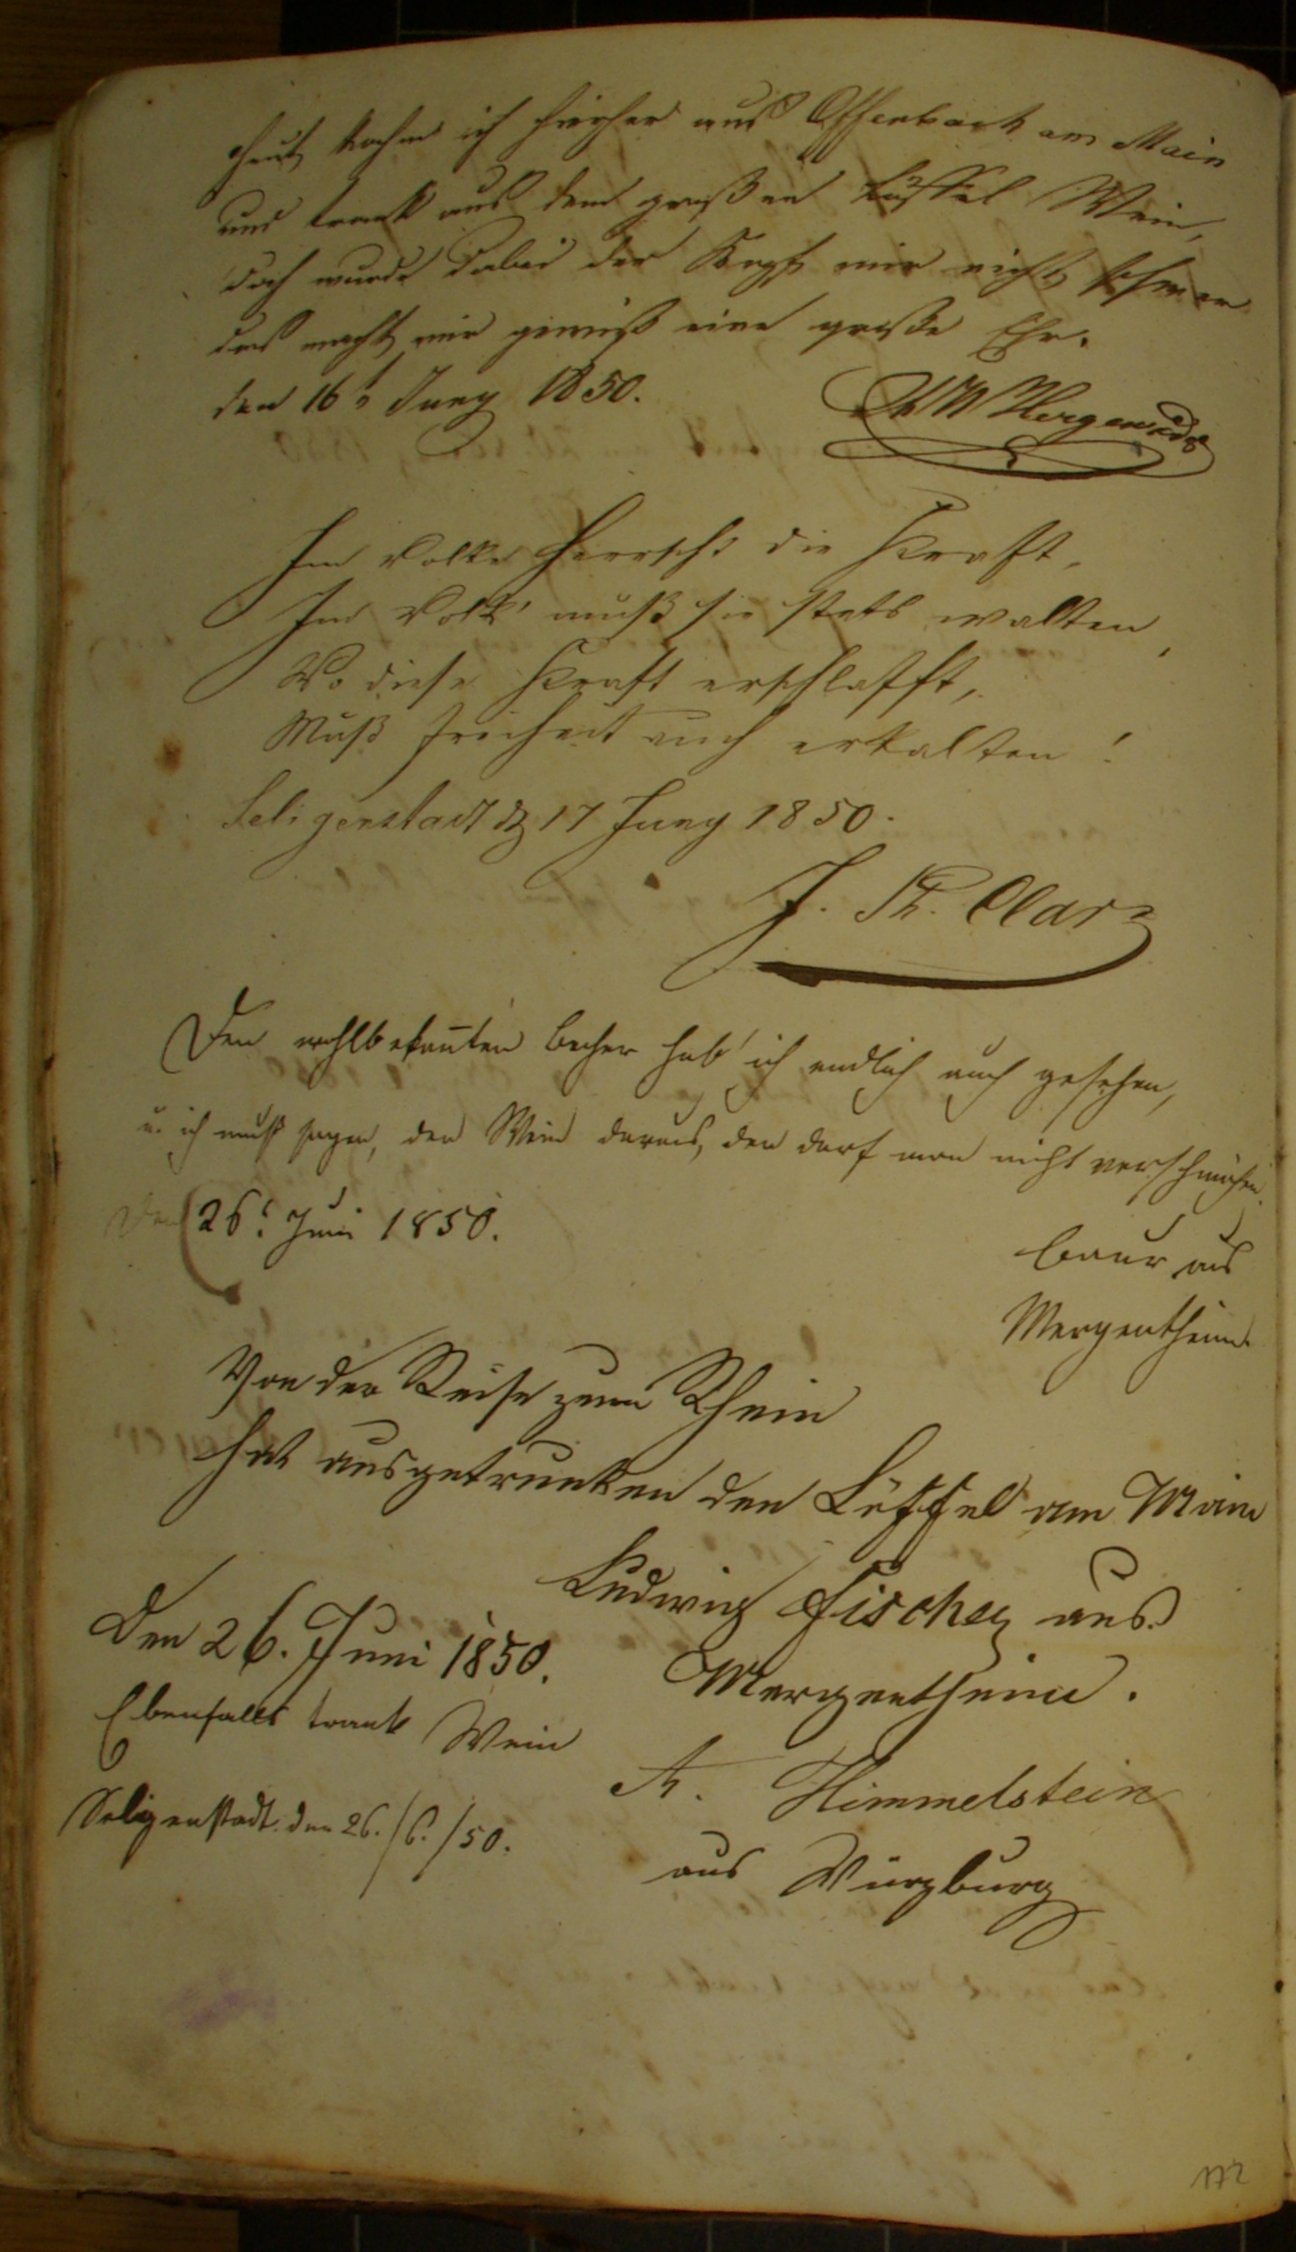 Heut kahm ich hierher aus Offenbach am Main
und trank aus dem großen Löffel Wein,
doch wurde dabei der Kopf mir nicht schwer
das macht mir gewiß eine große Ehr.
den 16t Juny 1850.
Im Volke herrscht die Kraft,
Im Volk' muß sie stets walten,
Wo diese Kraft erschlafft,
Muß Freiheit auch erkalten!
Seligenstadt d 17 Juny 1850.
J. Ph. Clar
Den wohlbekan̄ten Becher hab' ich endlich auch gesehen,
u. ich muß sagen, den Wein daraus, den darf man nicht verschmähen.
Den 26t Juni 1850.
Baur aus
Mergentheim
Von der Reise zum Rhein
Hat ausgetrunken den Löffel am Main
Ludwig Fischer aus
Den 26. Juni 1850.
Mergentheim.
Ebenfalls trank Wein
A. Himmelstein
Seligenstadt den 26./6./50.
aus Würzburg
172